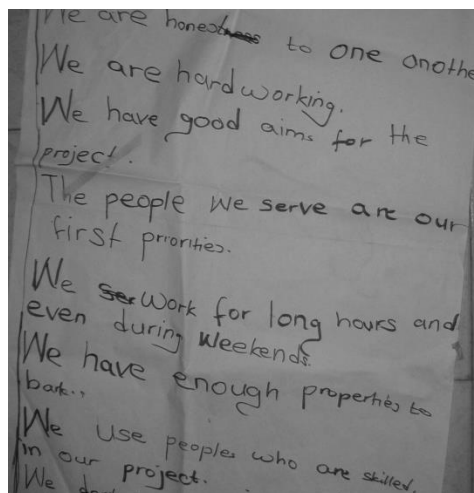 We are honest to one anothe
We are hardworking.
We have good aims for the
project.
The people we serve are our
first priorities.
We work for long hours and
even during weekends.
We have enough properties to
bark..
We use peoples who are skilled.
in our project.
We